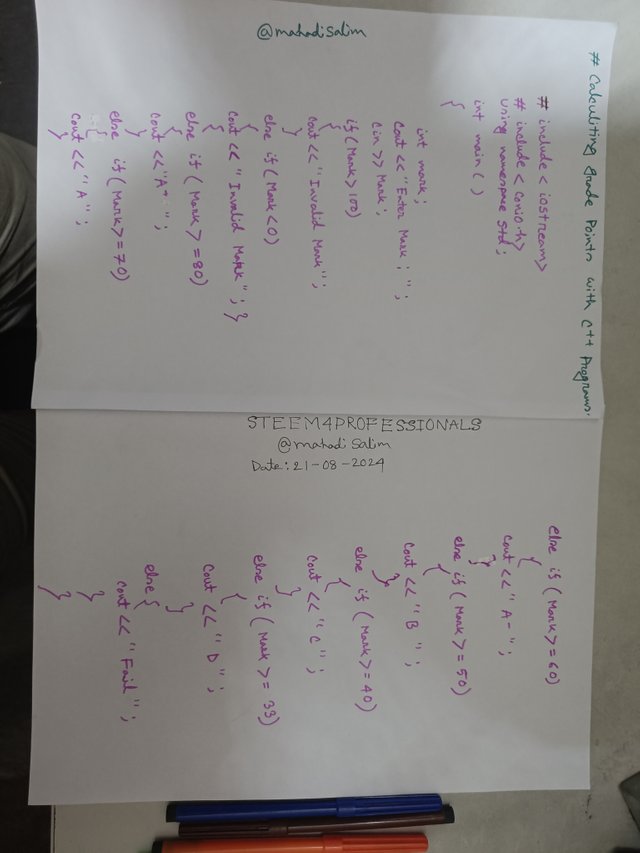 # Calculiting grade Points with C++ Programs.
# include < iostream>
# include < conio.h>
using namespace std;
int main ( )
{
int mark;
cout << "Enter Mark : ";
cin >> Mark;
if (Mark > 100)
{
cout << "Invalid Mark";
}
else if (Mark < 0)
{
cout << "Invalid Mark"; }
else if ( Mark > = 80)
{
cout << "A+ ";
}
else if ( Mark > = 70)
{
cout << "A";
}
@mahadisalim
STEEM4PROFESSIONALS
@mahadisalim
Date: 21-08-2024
else if ( Mark > = 60)
{
cout << "A- ";
}
else if ( Mark > = 50)
{
cout << "B ";
}
else if ( Mark > = 40)
{
cout << "C";
}
else if ( Mark > = 33)
{
cout << "D";
}
else {
cout << "Fail";
}
}